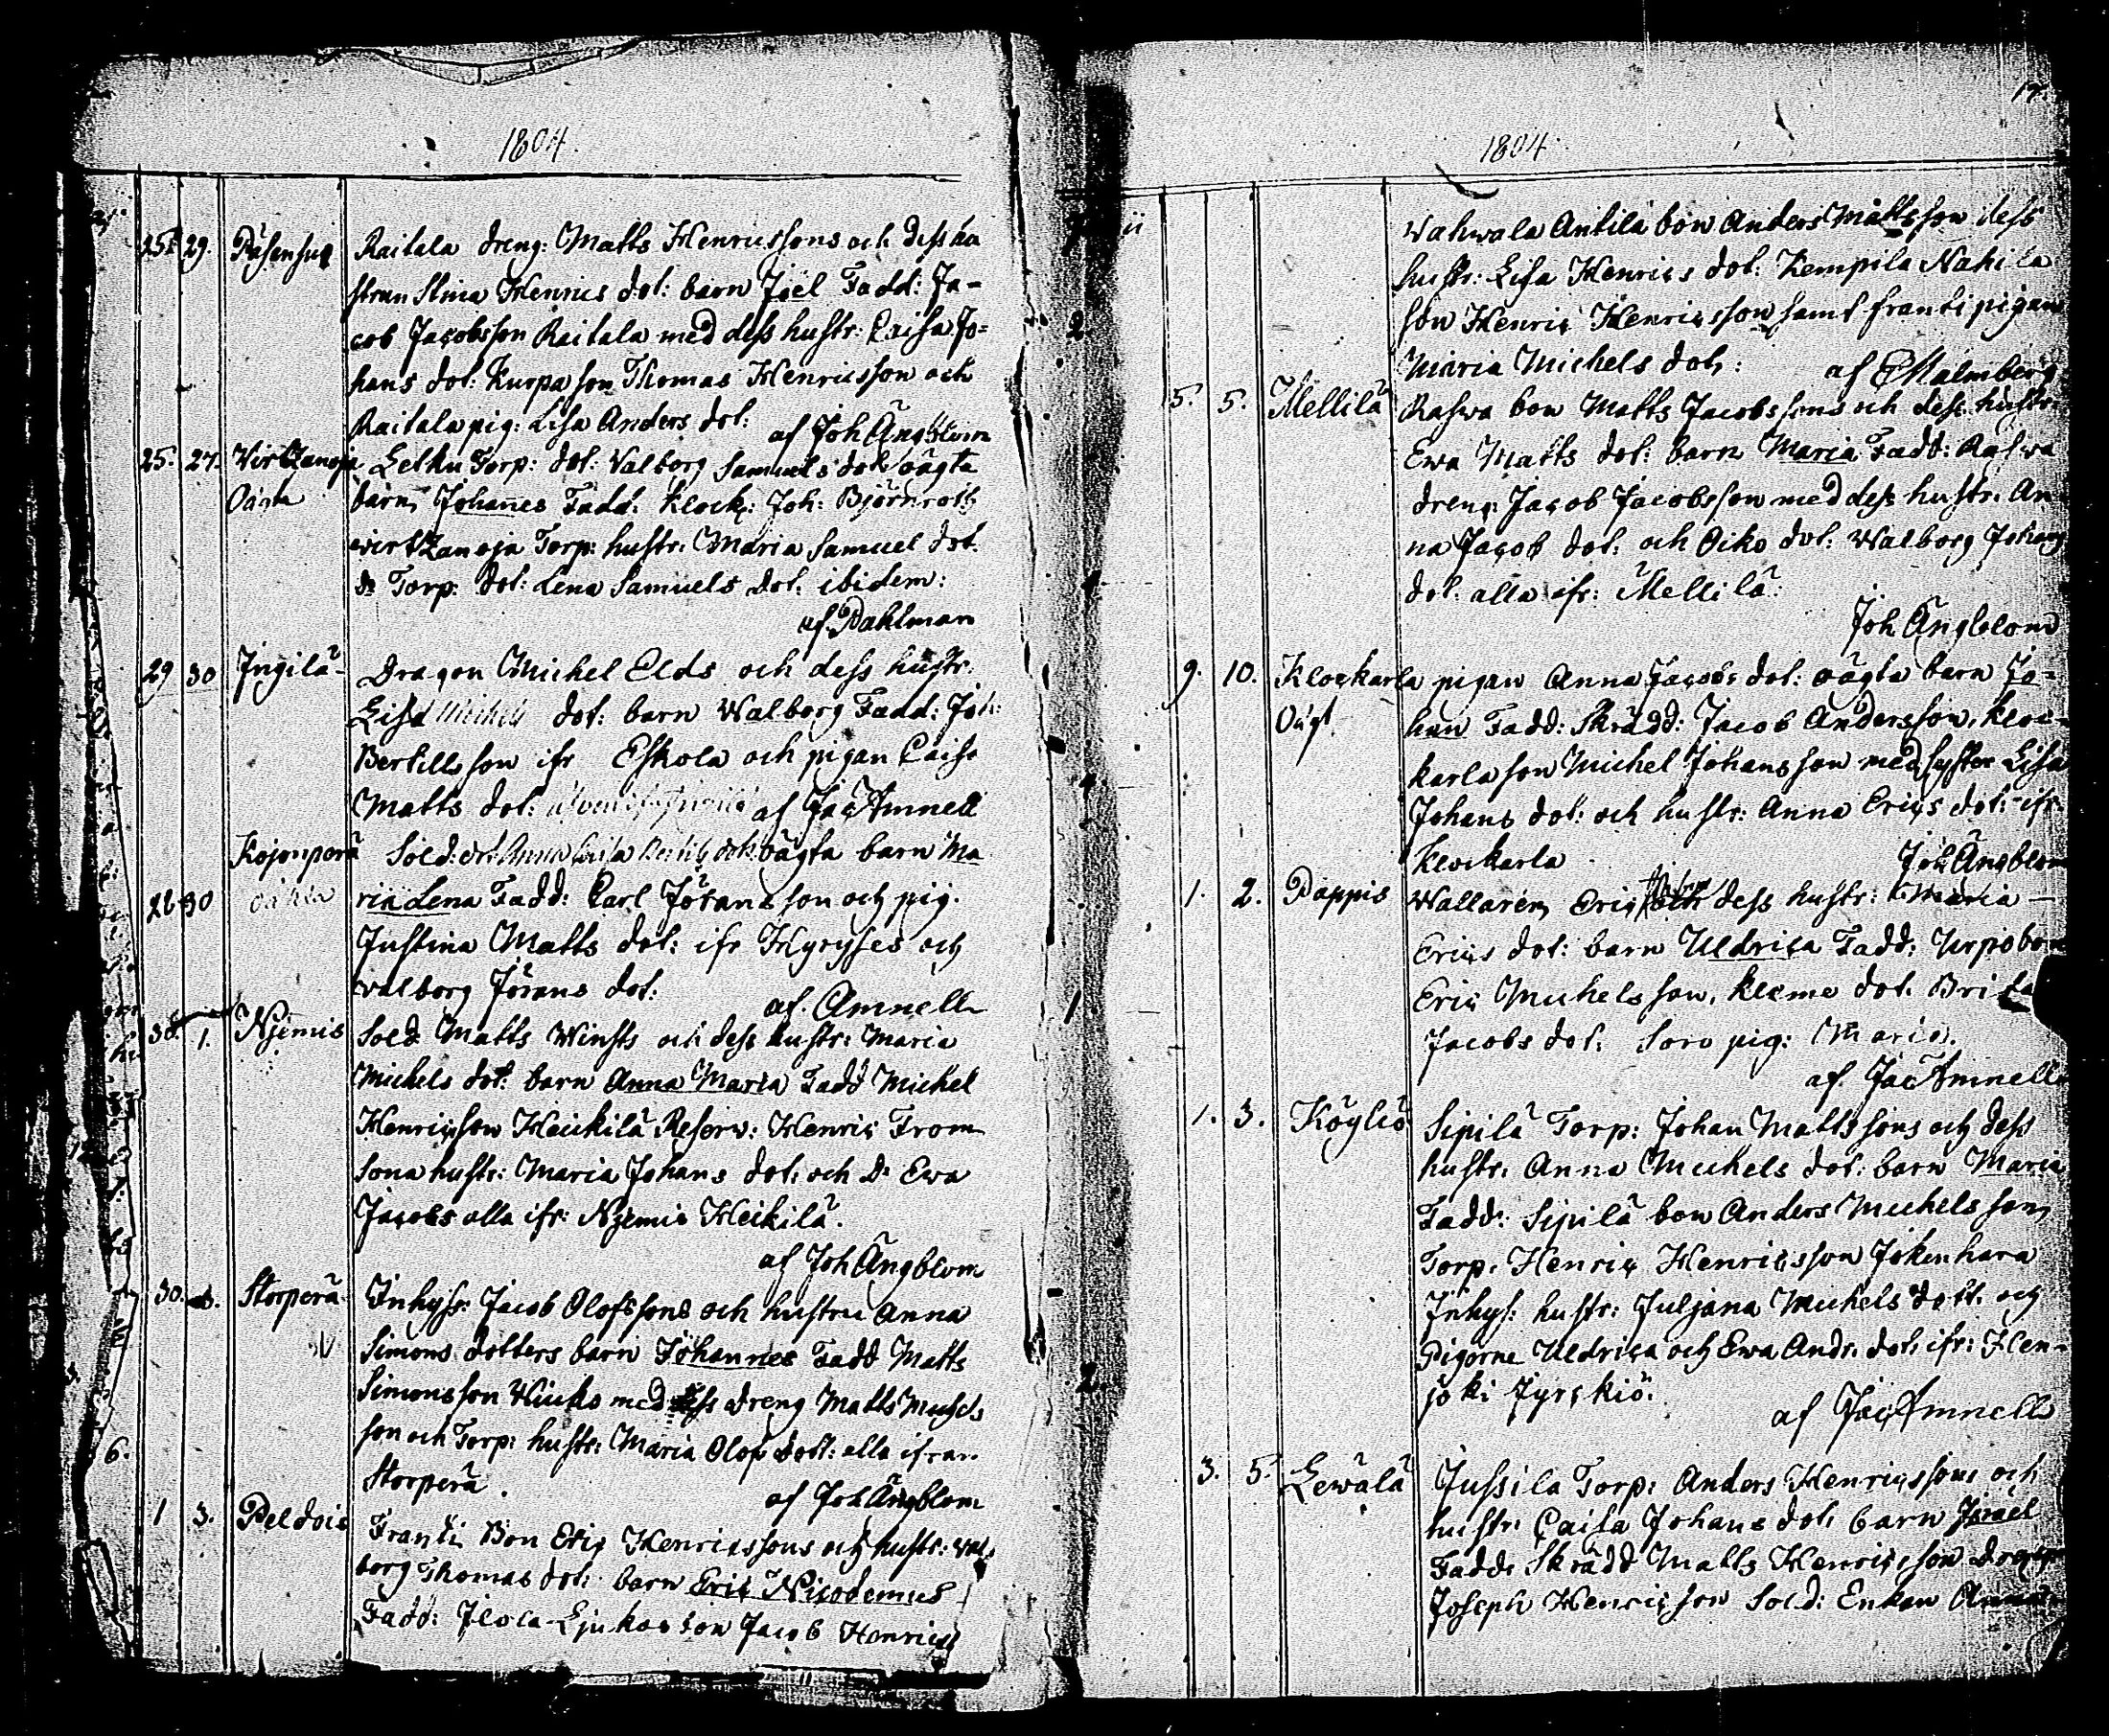 1804
25. 29. Päsänsuo Raitala dreng: Matts Henricssons och dess hu
strun Stina Henrics dot: barn Joel Fadd: Ja-
cob Jacobsson Raitala med dess hustr: Caisa Jo=
hans dot: Kurpa son Thomas Henricsson och
Raitala pig: Lisa Anders dot: af Joh Ängblom
25. 27. Virtzanoja Letku Torp: dot: Valborg Samuels dot oägta
Oägta barn Johannes Fadd: Klock: Joh: Björnroth
wirtzanoja Torp: hustr: Maria Samuel dot.
do Torp: dot: Lena Samuels dot: ibidem:
af. Dahlman
29 30 Ingilä- Dragon Michel Elds och dess hustr.
Lisa Michels dot: barn Walborg Fadd: Joh:
Bertillsson ifr Eskola och pigan Caisa
Matts dot: af Jac Amnell
Kojonperä Sold: dot: Anna Caisa dot: oägta barn Ma
26 30 oägta ria Lena Fadd: Carl Jöransson och pig.
Justina Matts dot: ifr Hyrysses och
walborg Jörans dot: af. Amnell
30. 1. Njemis Sold Matts Winsts och dess hustr: Maria
Michels dot: barn Anna Maria Fadd Michel
Henricsson Heickilä Reserv: Henric From
Sona hustr: Maria Johans dot: och Do Ewa
Jacobs alla ifr: Njemis Heikilä.
af Joh Ängblom
30. Storperä Inhyss: Jacob Olofssons och hustru Anna
Simons dotters barn Johannes Fadd Matts
Simonsson Kiuko med dess dreng Matts Michels
son och Torp: hustr: Maria Olof dott: alla ifrån
Storperä. af Joh Ängblom
1 3. Peldois Franti Bon Eric Henricssons och hustr: wal
borg Thomas dot: barn Eric Nicodemus
Fadd: Ilola-Ljukas son Jacob Henrics
1804
17.
wahwala Antila bon Anders Mattsson dess
hustr: Lisa Henrics dot: Kempila Nakila
son Henric Henricsson samt franti pigan
Maria Michels dot: af E Malmberg
5. 5. Mellilä Rahwa bon Matts Jacobssons och dess hustr:
Ewa Matts dot: barn Maria Fadd: Rahwa
dreng: Jacob Jacobsson med dess hustr. An
na Jacob dot: och Oiko dot: Walborg Johans
dot: alla ifr: Mellilä.
Joh Ängblom
9. 10. Klockarla pigan Anna Jacobs dot: oägta barn Jo-
Oägt. han Fadd: Skrädd: Jacob Andersson, Kloc-
karla son Michel Johansson med syster Lisa
Johans dot: och hustr: Anna Erics dot: ifr.
Klockarla. Joh Ängblom
1. 2. Pappis Wallaren Eric dess hustr: Maria
Erics dot: barn Uldrica Fadd: Urpo bon
Eric Michelsson, Kleme dot. Brita
Jacobs dot: Soro pig: Maria.
af. Jac Amnell
1. 3. Köyliö Sipilä Torp: Johan Mattssons och dess
hustr. Anna Michels dot: barn Maria
Fadd: Sipilä bon Anders Michelsson,
Torp. Henric Henricsson Jokenhara
Inhys: hustr: Juljana Michels dott. och
Pigorne Uldrica och Ewa Andr. dot: ifr: Hen-
joki Jyrskiö.
af Jac Amnell
3. 5. Lewälä Jussila Torp: Anders Henricssons och
hustr: Caisa Johans dot: barn Israel
Fadd: Skrädd Matts Henricsson Dreng
Joseph Henricsson Sold: Enkan Anna